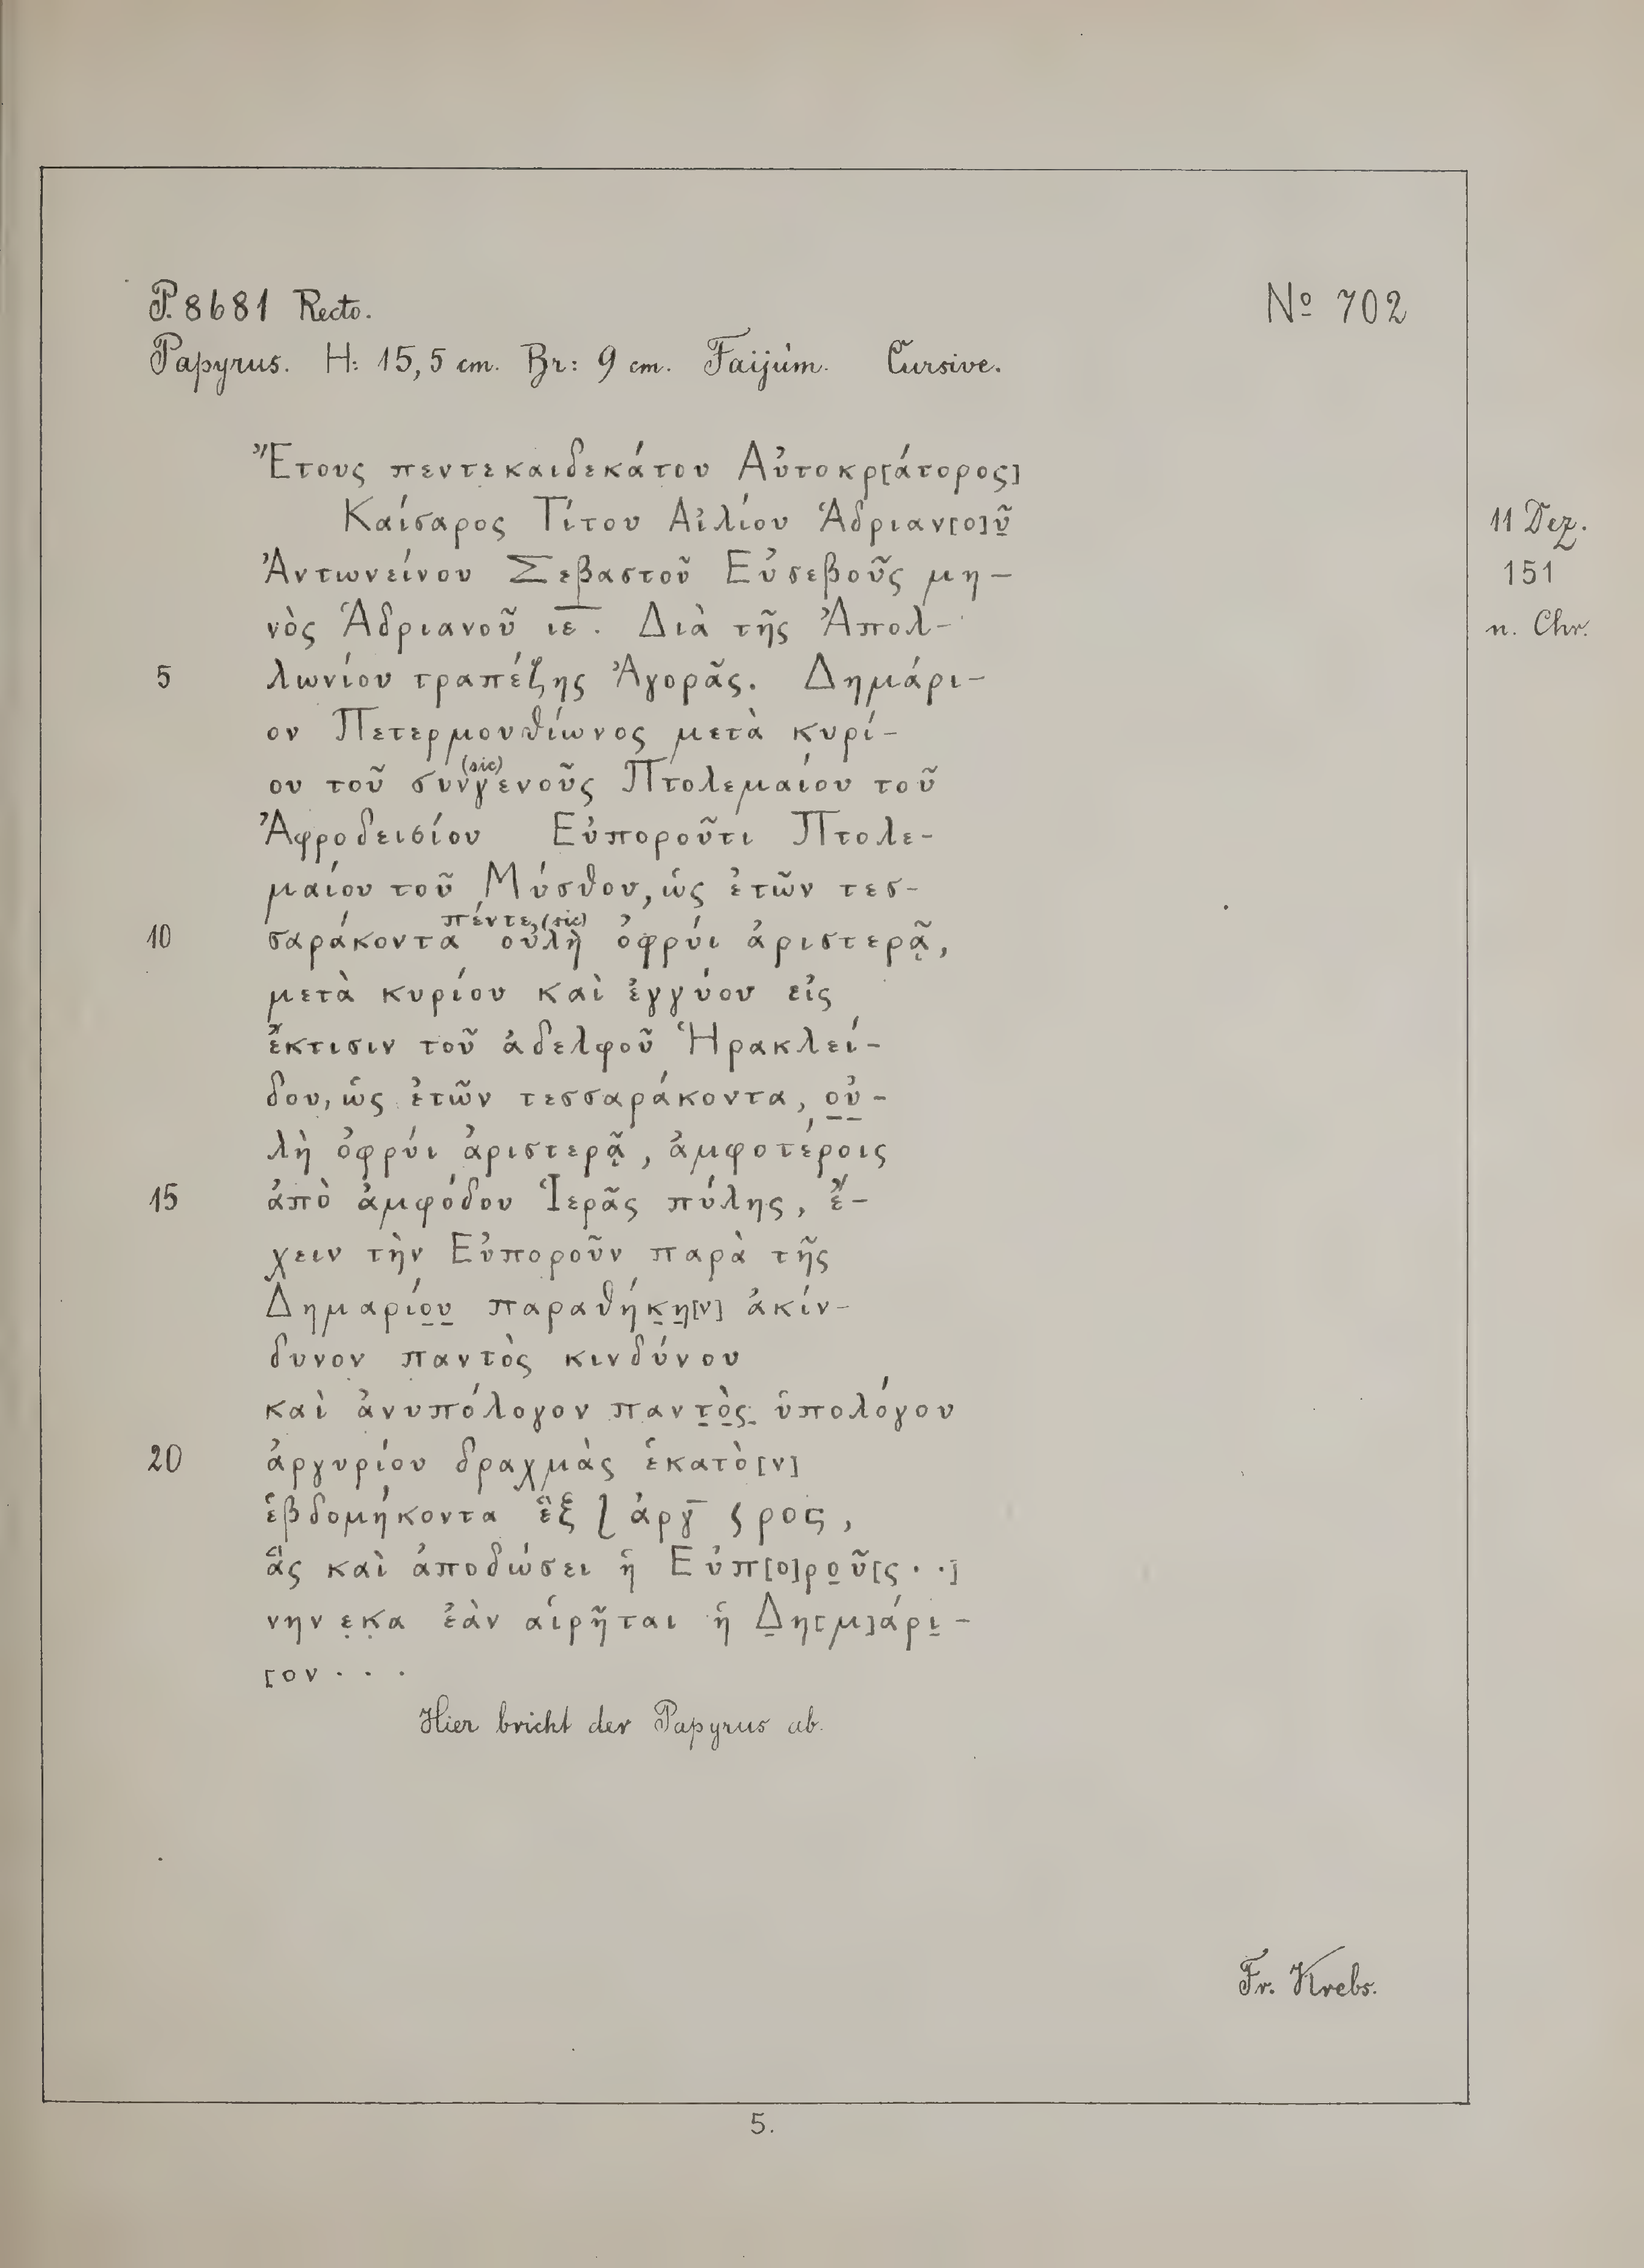 P. 8681 Recto.
Nº 702
Papyrus. H: 15,5 cm. Br: 9 cm. Faijûm. Cursive.
Ἔτους πεντεκαιδεκάτου Αὐτοκρ[άτορος]
Καίσαρος Τίτου Αἰλίου Ἁδριαν[ο]ῦ̣
11 Dez.
Ἀντωνείνου Σεβαστοῦ Εὐσεβοῦς μη-
151
νὸς Ἁδριανοῦ ιε̅. Διὰ τῆς Ἀπολ-
n. Chr.
5 λωνίου τραπέζης Ἀγορᾶς. Δημάρι-
ον Πετερμουθίωνος μετὰ κυρί-
(sic)
ου τοῦ συνγενοῦς Πτολεμαίου τοῦ
Ἀφροδεισίου Εὐποροῦτι Πτολε-
μαίου τοῦ Μύσθου, ὡς ἐτῶν τεσ-
πέντε, (sic)
10 σαράκοντα οὐλὴ ὀφρύι ἀριστερᾷ,
μετὰ κυρίου καὶ ἐγγύου εἰς
ἔκτισιν τοῦ ἀδελφοῦ Ἡρακλεί-
δου, ὡς ἐτῶν τεσσαράκοντα, ο̣ὐ̣-
λὴ ὀφρύι ἀριστερᾷ, ἀμφοτέροις
15 ἀπὸ ἀμφόδου Ἱερᾶς πύλης, ἔ-
χειν τὴν Εὐποροῦν παρὰ τῆς
Δημαρίο̣υ̣ παραθήκ̣η̣[ν] ἀκίν-
δυνον παντὸς κινδύνου
καὶ ἀνυπόλογον παντ̣ὸ̣ς̣ ὑπολόγου
20 ἀργυρίου δραχμὰς ἑκατὸ[ν]
ἑβδομήκοντα ἓξ ⎱ ἀργ̅ ϛ ρος,
ἃς καὶ ἀποδώσει ἡ Εὐπ[ο]ρο̣ῦ[ς · ·]
νην ε̣κ̣α ἐὰν αἱρῆται ἡ Δ̣η[μ]άρι̣-
[ον · · ·
Hier bricht der Papyrus ab.
Fr. Krebs.
5.